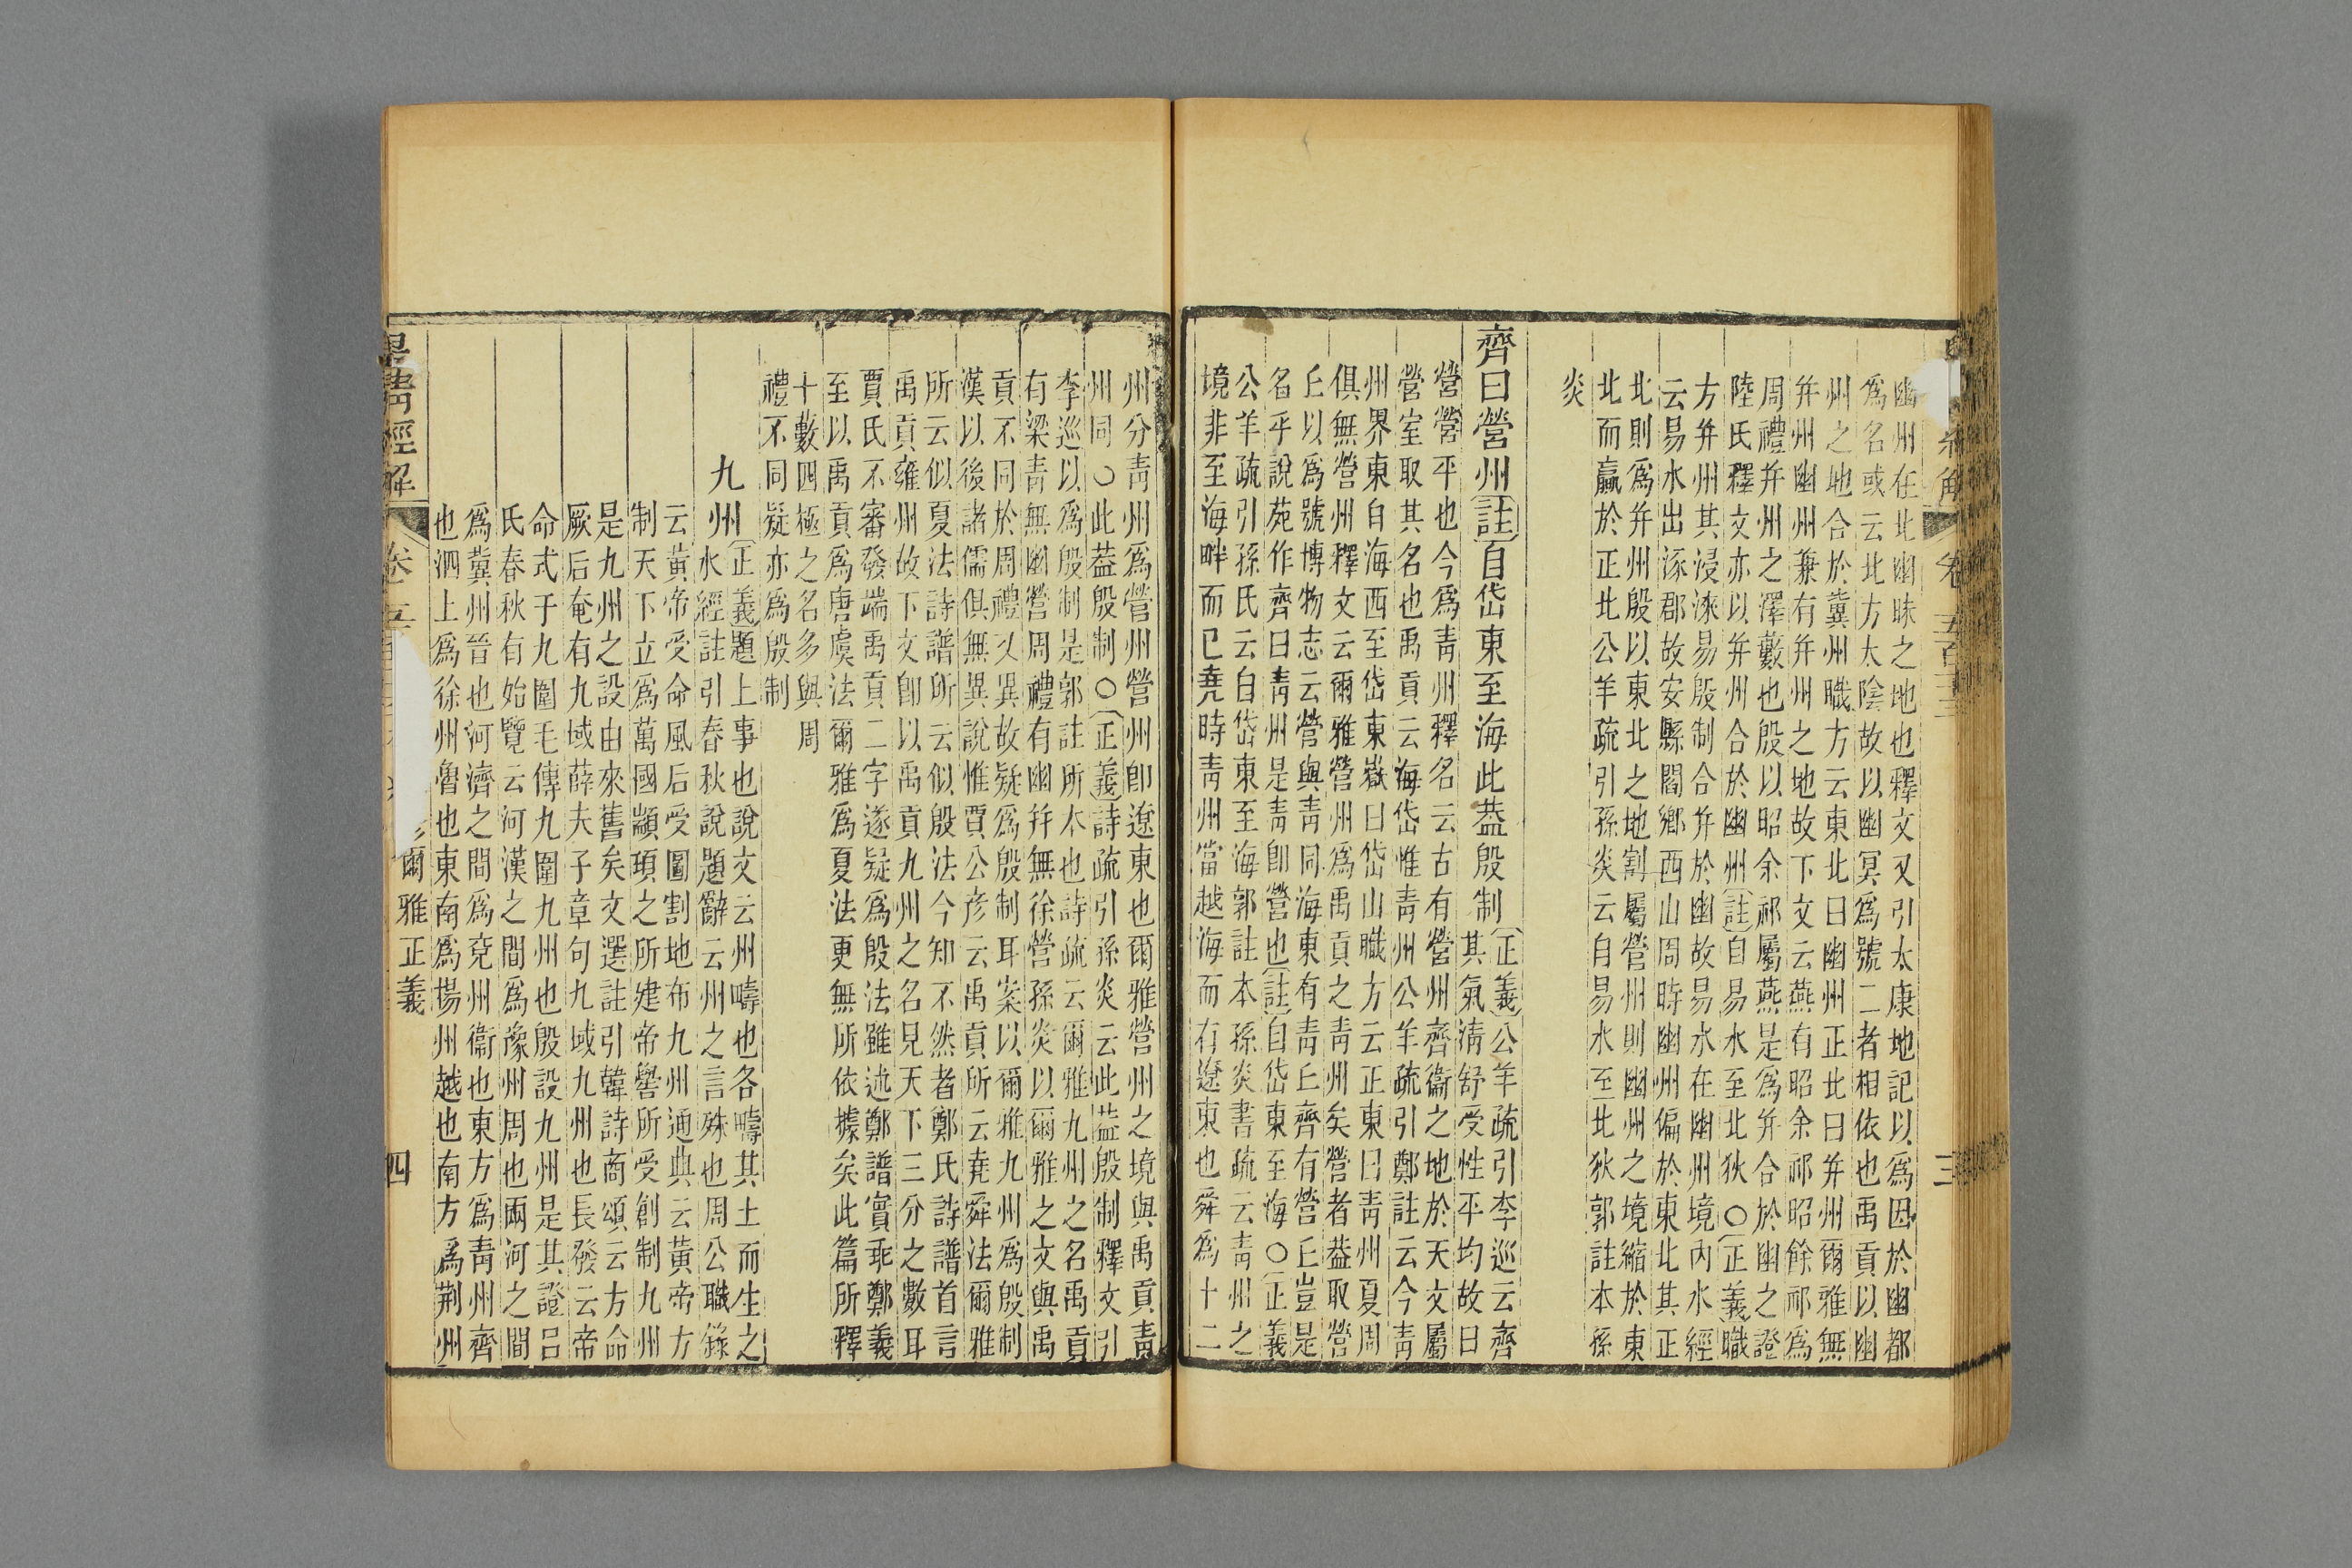 幽州在北幽昧之地也釋文又引太康地記以爲因於幽都
爲名或云北方太陰故以幽冥爲號二者相依也禹貢以幽
州之地合於冀州職方云東北曰幽州正北曰幷州爾雅無
幷州幽州兼有幷州之地故下文云燕有昭余祁昭餘祁爲
周禮幷州之澤藪也殷以昭余祁屬燕是爲幷合於幽之證
陸氏釋文亦以幷州合於幽州註自易水至北狄○正義職
方幷州其浸淶易殷制合幷於幽故易水在幽州境內水經
云易水出涿郡故安縣閻鄉西山周時幽州偏於東北其正
北則爲幷州殷以東北之地割屬營州則幽州之境縮於東
北而贏於正北公羊疏引孫炎云自易水至北狄郭註本孫
炎
齊曰營州註自岱東至海此葢殷制
正義公羊疏引李巡云齊
其氣淸舒受性平均故曰
營營平也今爲靑州釋名云古有營州齊衞之地於天文屬
營室取其名也禹貢云海岱惟靑州公羊疏引鄭註云今靑
州界東自海西至岱東嶽曰岱山職方云正東曰靑州夏周
俱無營州釋文云爾雅營州爲禹貢之靑州矣營者葢取營
丘以爲號博物志云營與靑同海東有靑丘齊有營丘豈是
名乎說苑作齊曰靑州是靑卽營也註自岱東至海○正義
公羊疏引孫氏云自岱東至海郭註本孫炎書疏云靑州之
境非至海畔而已堯時靑州當越海而有遼東也舜爲十二
州分靑州爲營州營州卽遼東也爾雅營州之境與禹貢靑
州同○此葢殷制○正義詩疏引孫炎云此葢殷制釋文引
李巡以爲殷制是郭註所本也詩疏云爾雅九州之名禹貢
有梁靑無幽營周禮有幽幷無徐營孫炎以爾雅之文與禹
貢不同於周禮又異故疑爲殷制耳案以爾雅九州爲殷制
漢以後諸儒俱無異說惟賈公彥云禹貢所云堯舜法爾雅
所云似夏法詩譜所云似殷法今知不然者鄭氏詩譜首言
禹貢雍州故下文卽以禹貢九州之名見天下三分之數耳
賈氏不審發端禹貢二字遂疑爲殷法雖述鄭譜實乖鄭義
至以禹貢爲唐虞法爾雅爲夏法更無所依據矣此篇所釋
十藪四極之名多與周
禮不同疑亦爲殷制
九州
正義題上事也說文云州疇也各疇其土而生之
水經註引春秋說題辭云州之言殊也周公職錄
云黃帝受命風后受圖割地布九州通典云黃帝方
制天下立爲萬國顓頊之所建帝嚳所受創制九州
是九州之設由來舊矣文選註引韓詩商頌云方命
厥后奄有九域薛夫子章句九域九州也長發云帝
命式于九圍毛傳九圍九州也殷設九州是其證呂
氏春秋有始覽云河漢之間爲豫州周也兩河之間
爲冀州晉也河濟之間爲兗州衞也東方爲靑州齊
也泗上爲徐州魯也東南爲揚州越也南方爲荆州
皇淸經解 卷五 爾雅正義 四